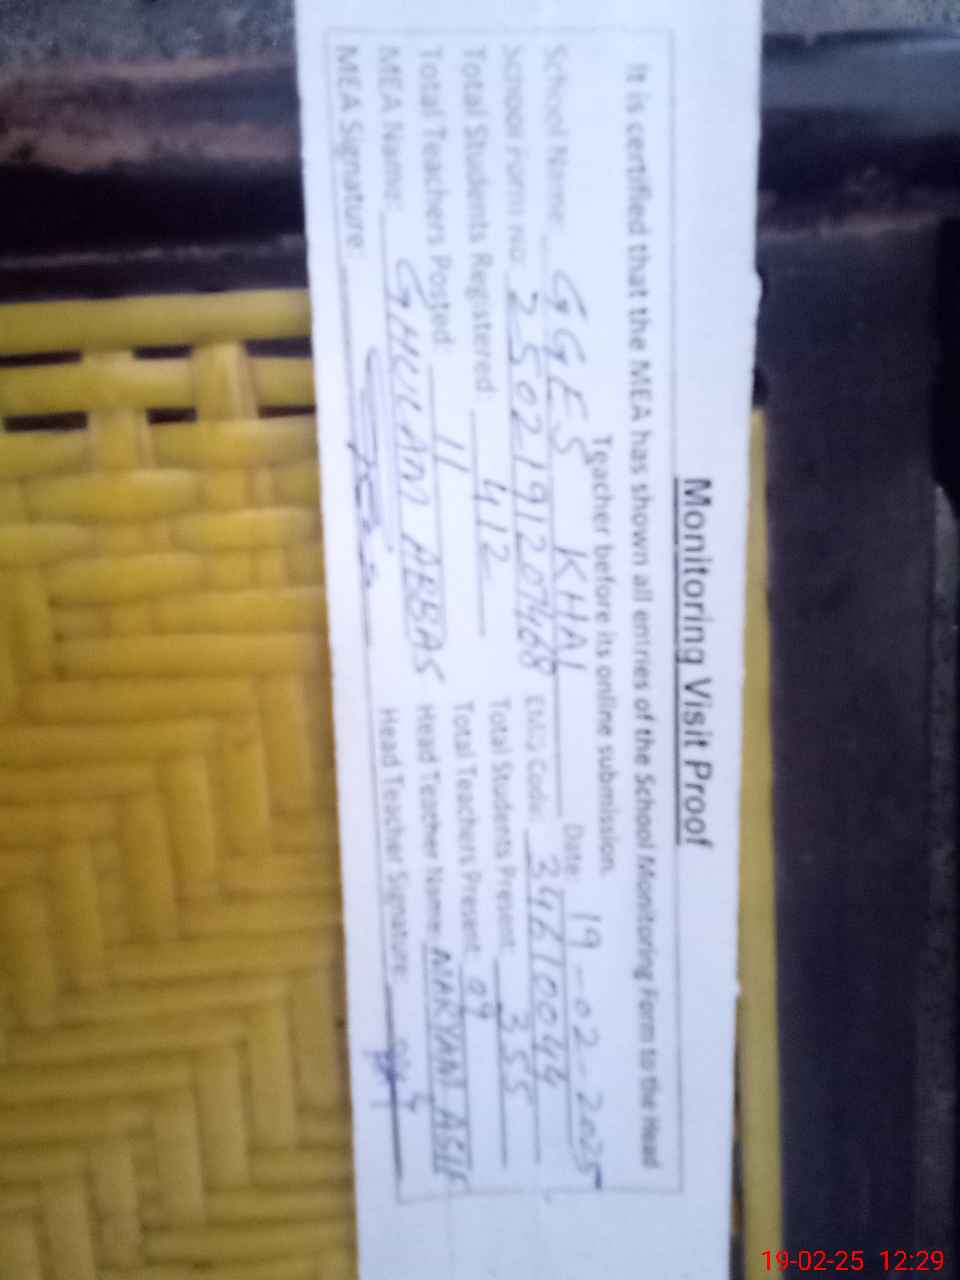 Monitoring Visit Proof
It is certified that the MEA has shown all entries of the School Monitoring Form to the Head
Teacher before its online submission.
School Name: GGES KHAI Date: 19-02-2025
School Form No: 2502191207468 EMIS Code: 34610044
Total Students Registered: 412 Total Students Present: 355
Total Teachers Posted: 11 Total Teachers Present: 09
MEA Name: GHULAM ABBAS Head Teacher Name: MARYAM ASIF
MEA Signature: Head Teacher Signature:
19-02-25 12:29